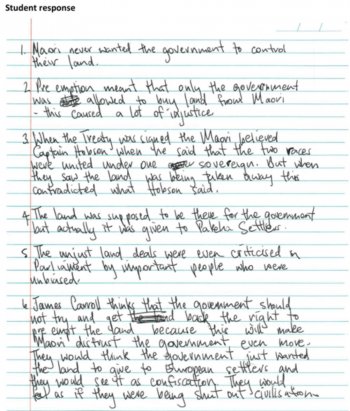 Student response
1. Maori never wanted the government to control
their land.
2. Pre emption meant that only the government
was allowed to buy land from Maori
- this caused a lot of injustice
3. When the Treaty was signed the Maori believed
Captain Hobson when he said that the two races
were united under one sovereign. But when
they saw the land was being taken away this
contradicted what Hobson said.
4. The land was supposed to be there for the government
but actually it was given to Pakeha Settlers.
5. The unjust land deals were even criticised in
Parliament by important people who were
unbiased.
6. James Carroll thinks that the government should
not try and get back the right to
pre empt the land because this will make
Maori distrust the government even more.
They would think the government just wanted
the land to give to European settlers and
they would see it as confiscation. They would
feel as if they were being shut out civilisation.